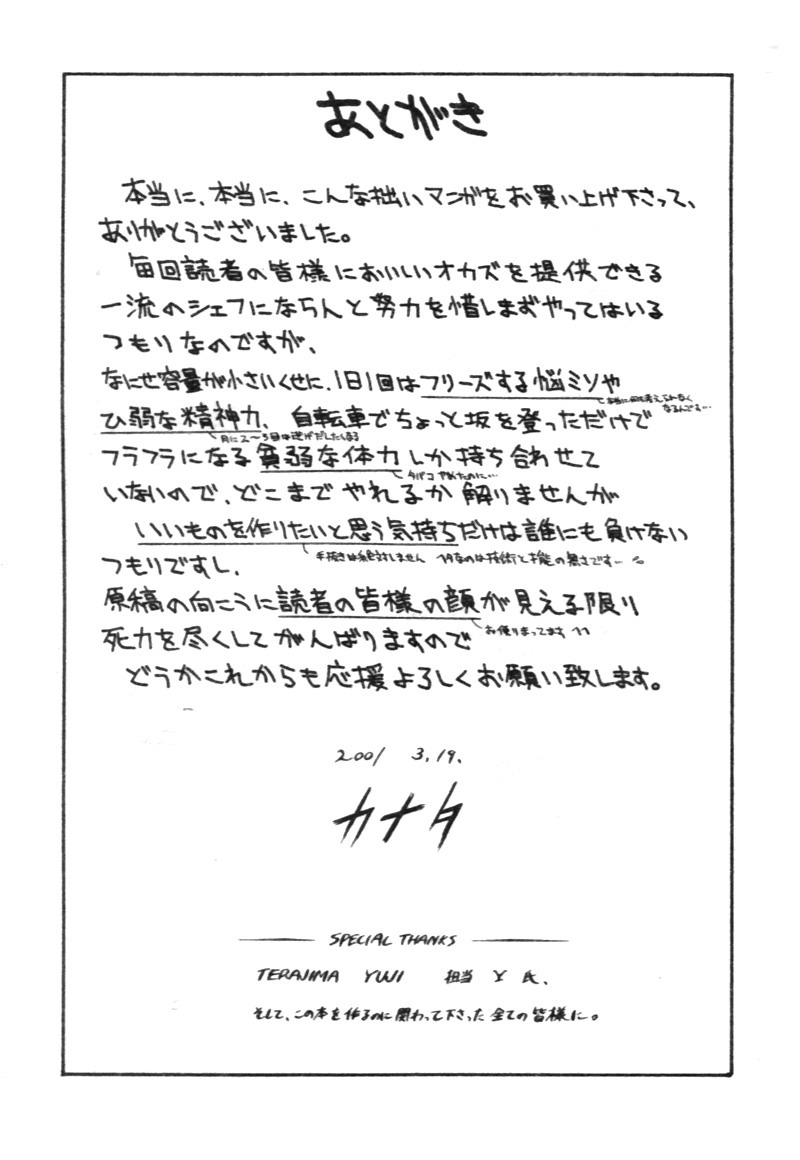 あとがき
本当に、本当に、こんな拙いマンガをお買い上げ下さって、
ありがとうございました。
毎回読者の皆様においしいオカズを提供できる
一流のシェフにならんと努力を惜しまずやってはいる
つもりなのですが、
なにせ容量が小さいくせに、1日1回はフリーズする脳ミソや
本当に何も考えられなく
なるんです…
ひ弱な精神力、自転車でちょっと坂を登っただけで
月に2〜3回は逃げだしたくなる
フラフラになる貧弱な体力しか持ち合わせて
タバコやめたのに…
いないので、どこまでやれるか解りませんが
いいものを作りたいと思う気持ちだけは誰にも負けない
手抜きは絶対しません
なのは技術と才能の無さです…
つもりですし、
原稿の向こうに読者の皆様の顔が見える限り
お便りまってます
死力を尽くしてがんばりますので
どうかこれからも応援よろしくお願い致します。
2001 3.19.
カナタ
SPECIAL THANKS
TERAJIMA YUJI 担当 Y 氏、
そして、この本を作るのに関わって下さった全ての皆様に。